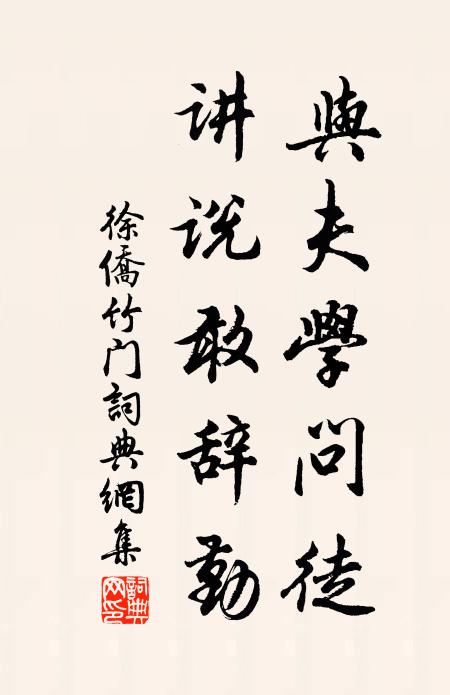 與夫學问徒
讲说敢辞勤
徐僑竹门詞典網集